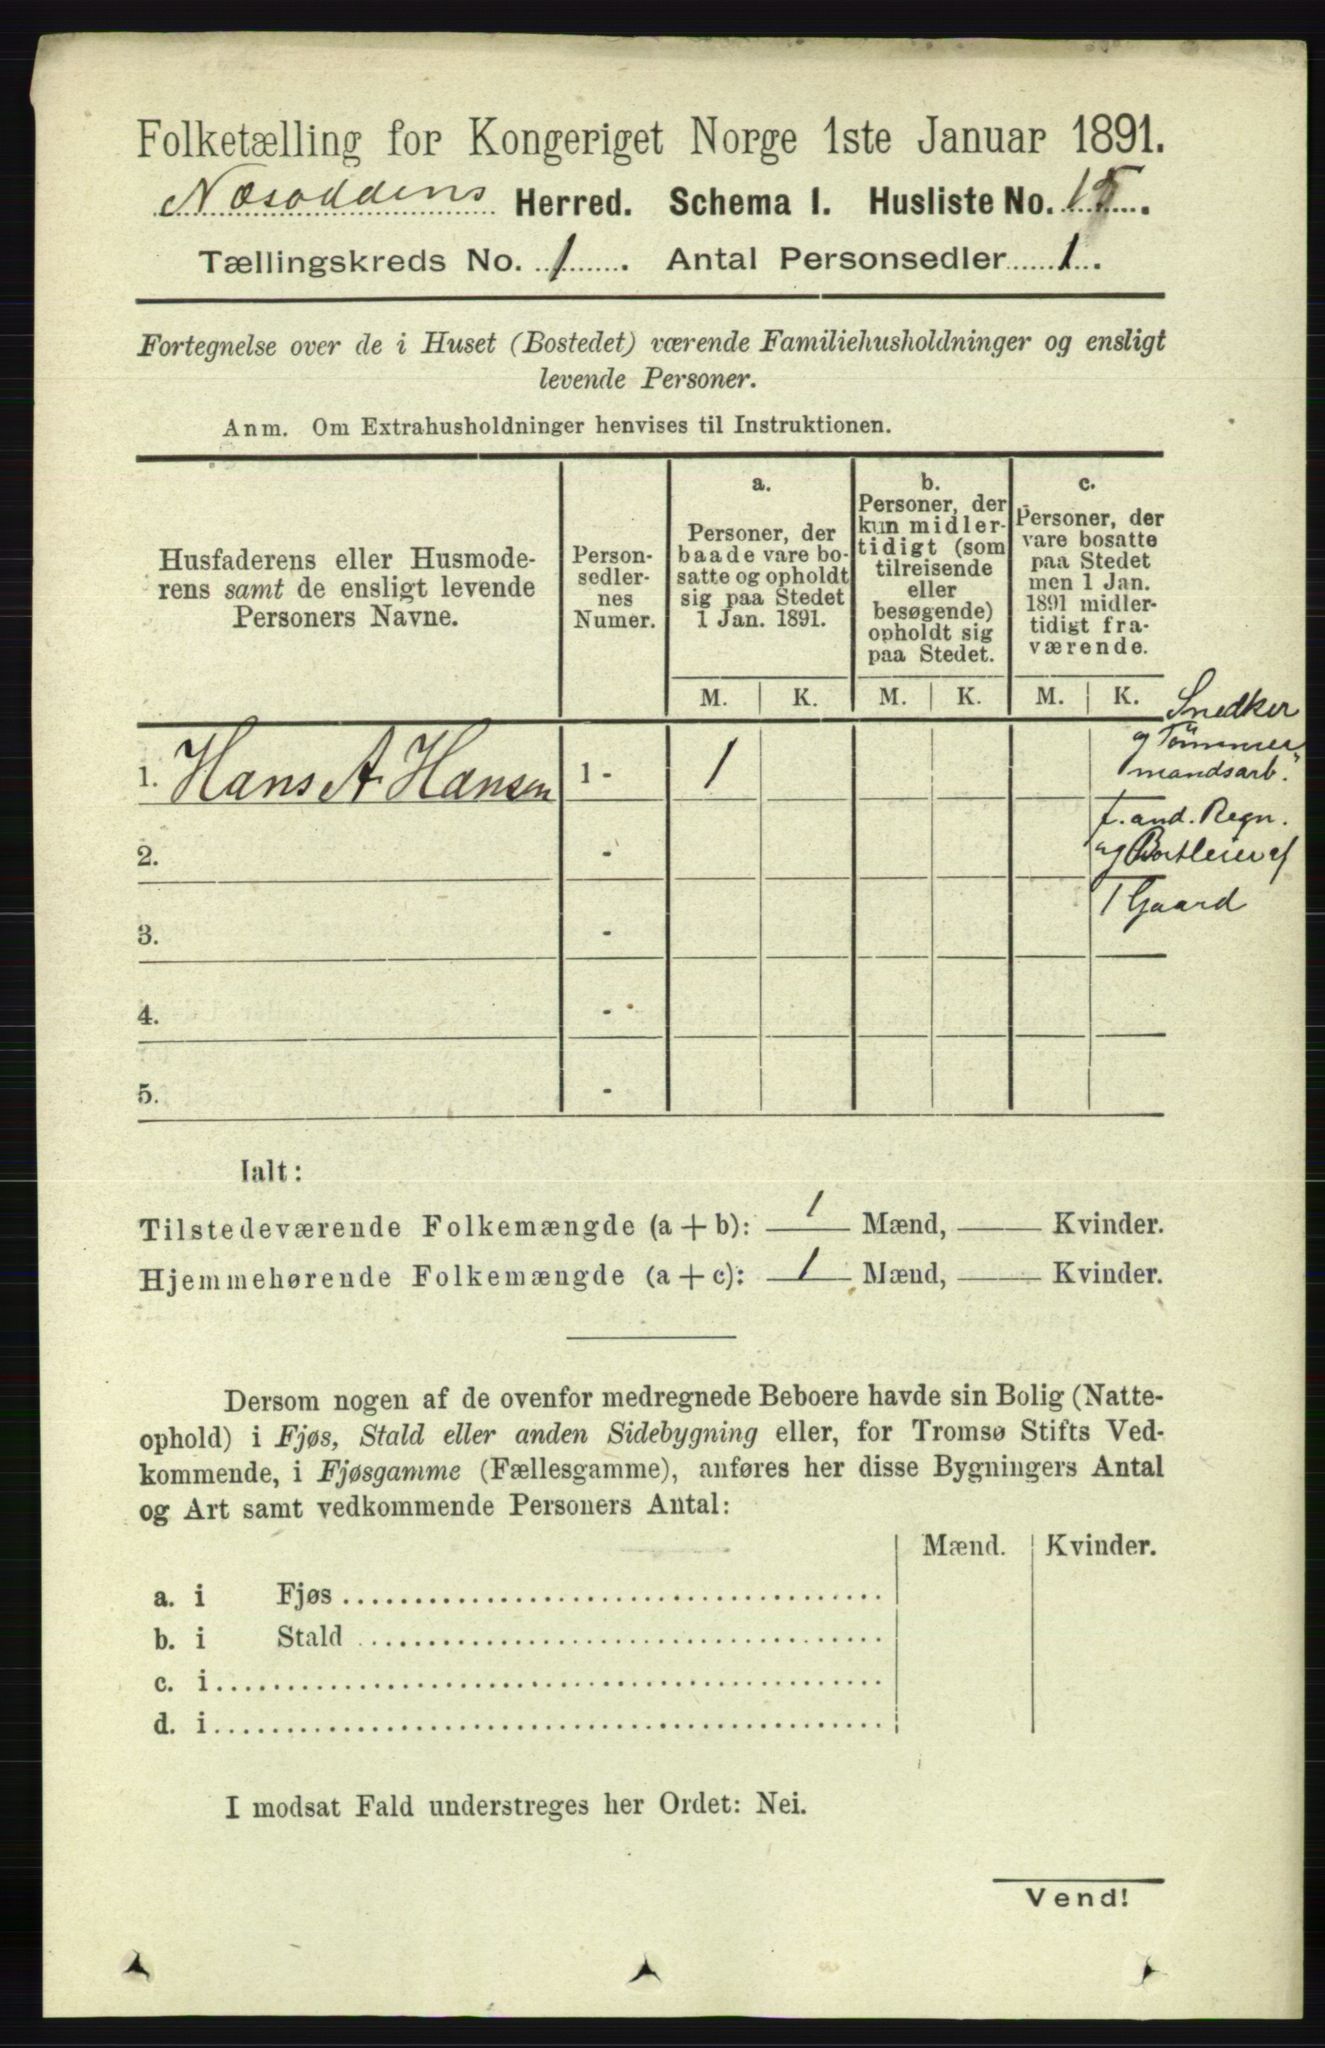 Folketælling for Kongeriget Norge 1ste Januar 1891.
Næsoddens Herred. Schema I. Husliste No. 15.
Tællingskreds No. 1. Antal Personsedler 1.
Fortegnelse over de i Huset (Bostedet) værende Familiehusholdninger og ensligt
levende Personer.
Anm. Om Extrahusholdninger henvises til Instruktionen.
Husfaderens eller Husmode-
rens samt de ensligt levende
Personers Navne.
Person-
sedler-
nes
Numer.
a.
Personer, der
baade vare bo-
satte og opholdt
sig paa Stedet
1 Jan. 1891.
b.
Personer, der
kun midler-
tidigt (som
tilreisende
eller
besøgende)
opholdt sig
paa Stedet.
c.
Personer, der
vare bosatte
paa Stedet
men 1 Jan.
1891 midler-
tidigt fra-
værende.
M. K. M. K. M. K.
1. Hans A Hansen 1 - 1
Snedker
og Tömmer
mandsarb.
f. and. Regn.
og Bortleier af
1 Gaard
2. -
3. -
4. -
5. -
Ialt:
Tilstedeværende Folkemængde (a + b): 1 Mænd, Kvinder.
Hjemmehørende Folkemængde (a + c): 1 Mænd, Kvinder.
Dersom nogen af de ovenfor medregnede Beboere havde sin Bolig (Natte-
ophold) i Fjøs, Stald eller anden Sidebygning eller, for Tromsø Stifts Ved-
kommende, i Fjøsgamme (Fællesgamme), anføres her disse Bygningers Antal
og Art samt vedkommende Personers Antal:
Mænd. Kvinder.
a. i Fjøs
b. i Stald
c. i
d. i
I modsat Fald understreges her Ordet: Nei.
Vend!